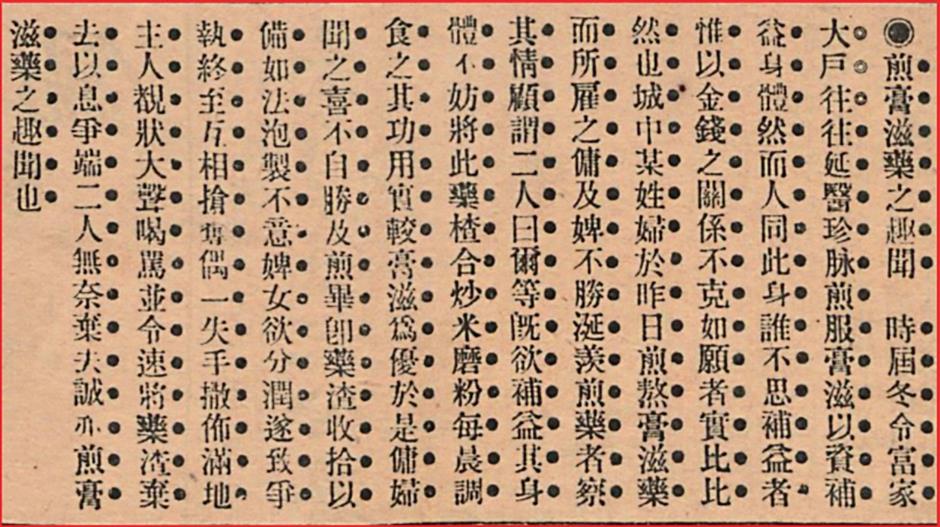 ◉煎膏滋藥之趣聞　時屆冬令富家
大戶往往延醫珍脉煎服膏滋以資補
益身體然而人同此身誰不思補益者
惟以金錢之關係不克如願者實比比
然也城中某姓婦於昨日煎熬膏滋藥
而所雇之傭及婢不勝涎羨煎藥者察
其情顧謂二人曰爾等既欲補益其身
體不妨將此藥楂合炒米磨粉每晨調
食之其功用實較膏滋爲優於是傭婦
聞之喜不自勝及煎畢卽藥渣收拾以
備如法泡製不意婢女欲分潤遂致爭
執終至互相搶奪偶一失手撒佈滿地
主人覩狀大聲喝罵並令速將藥渣棄
去以息爭端二人無奈棄去誠亦煎膏
滋藥之趣聞也